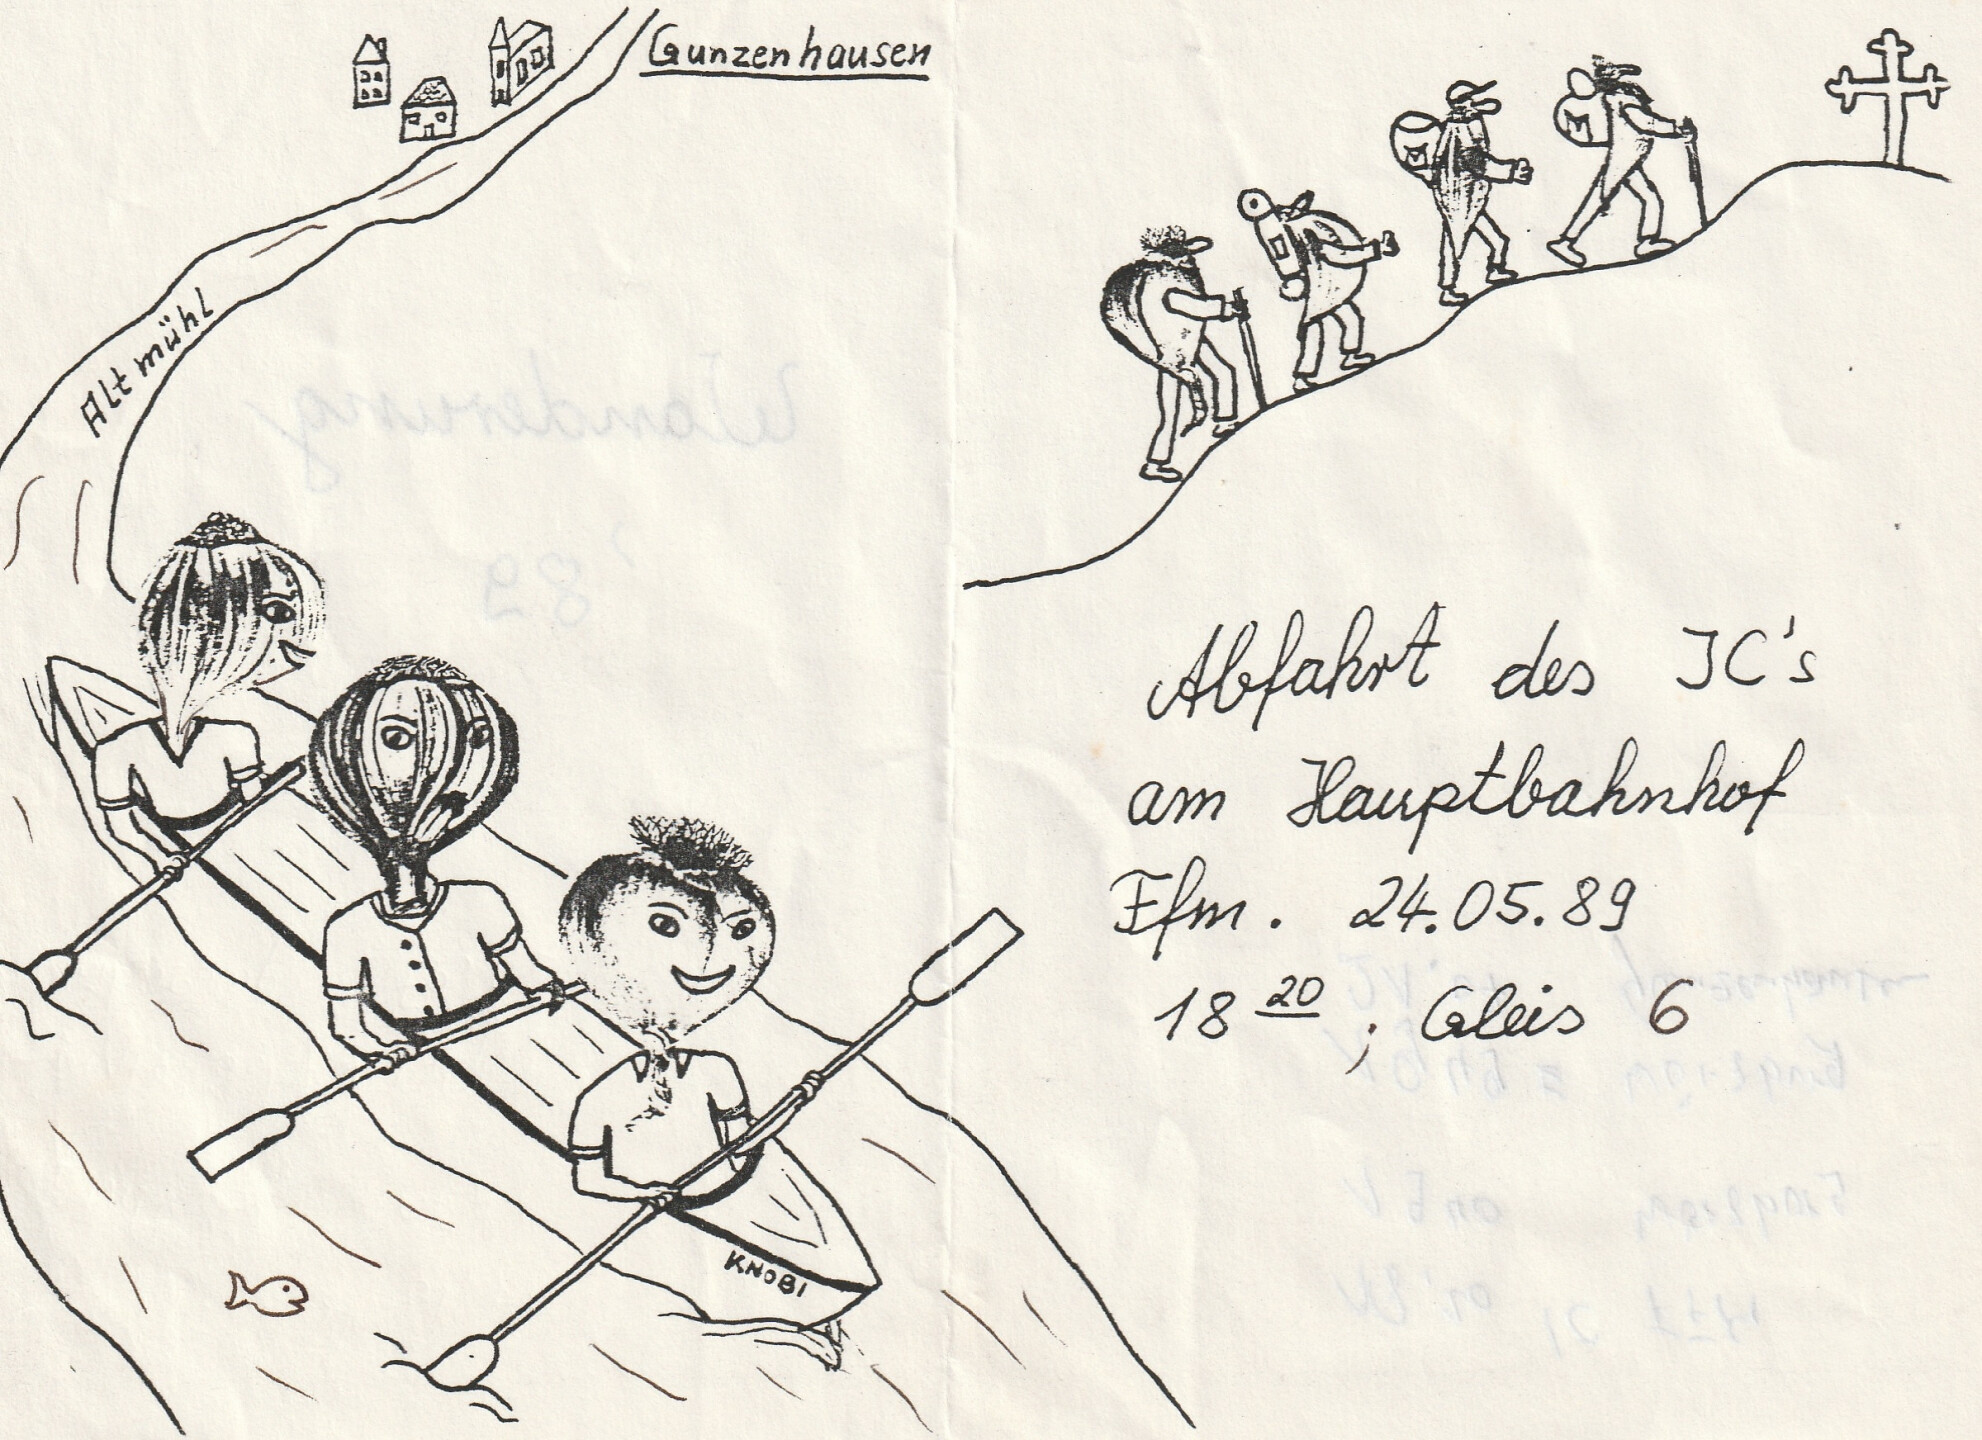 Gunzenhausen
Altmühl
KNOBI
Abfahrt des IC's
am Hauptbahnhof
Ffm. 24.05.89
18 20 ; Gleis 6
Wanderung
'89